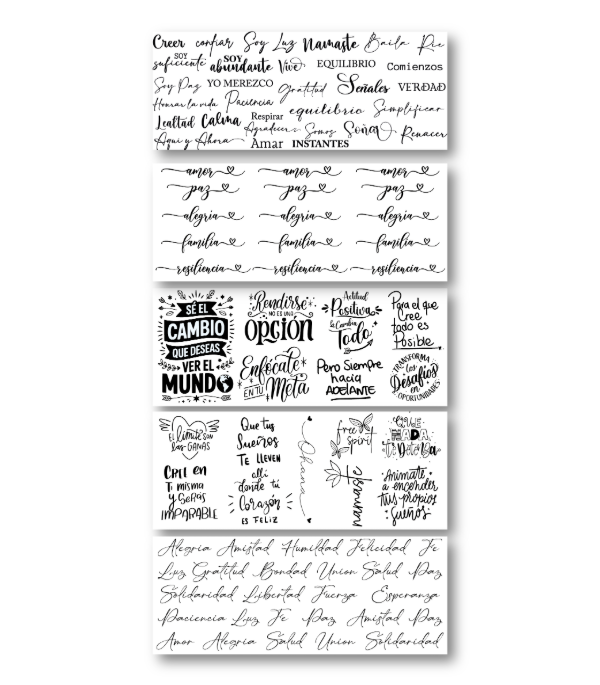 Creer confiar Soy Luz Namaste Baila Rie
suficiente SOY abundante Vive EQUILIBRIO Comienzos
SOY
Soy Paz YO MEREZCO Gratitud Señales VERDAD
Honrar la vida Paciencia equilibrio Simplificar
Lealtad Calma Respirar Agradecer Somos Soñar Renacer
Aqui y Ahora Amar INSTANTES
amor amor amor
paz paz paz
alegria alegria alegria
familia familia familia
resiliencia resiliencia resiliencia
SÉ EL
CAMBIO
QUE DESEAS
VER EL
MUNDO
Rendirse
NO ES UNA
OPCIÓN
Enfócate
EN TU Meta
Actitud
Positiva
lo Cambia
Todo
Pero Siempre
hacia
ADELANTE
Para el que
Cree
todo es
Posible
TRANSFORMA
los
Desafíos
en
OPORTUNIDADES
El límite son
las GANAS
CREE EN
Ti misma
y SERÁS
IMPARABLE
Que tus
Sueños
TE LLEVEN
allí
donde tú
Corazón
ES FELIZ
Ohana
free
spirit
Namasté
QUE
NADA
te Detenga
Anímate
a encender
tus propios
sueños
Alegria Amistad Humildad Felicidad Fe
Luz Gratitud Bondad Union Salud Paz
Solidaridad Libertad Fuerza Esperanza
Paciencia Luz Fe Paz Amistad Paz
Amor Alegria Salud Union Solidaridad